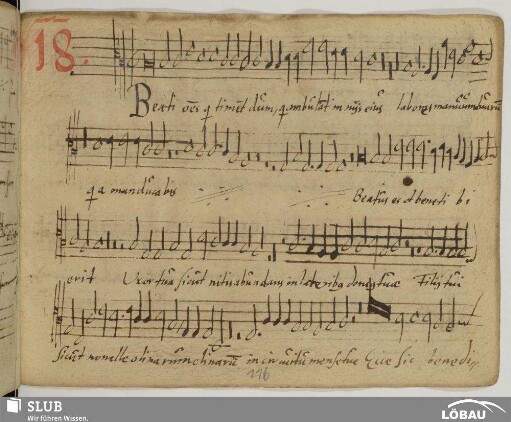 18.
Beati oēs q̄ timēt dūm, q̄ ambulāt in vijs eius labores manuum tuarū
q̄a manducabis Beatus es et bene ti bi
erit Uxor tua sicut vitis abundans in laterib9 domus tuæ Filij tui
Sicut novellæ olivarum in circuitu mensæ tuæ Ecce sic benedi
116
SLUB
Wir führen Wissen.
LÖBAU